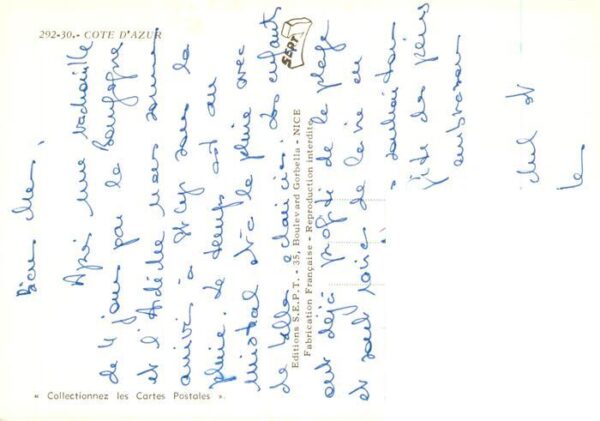 292-30.- COTE D'AZUR
SEPT
Editions S.E.P.T. - 35, Boulevard Gorbella - NICE
Fabrication Française - Reproduction interdite
« Collectionnez les Cartes Postales ».
Bien chers,
Après une vadrouille
de 4 jours par la Bourgogne
et l'Ardèche nous sommes
arrivés à St Cyp sous la
pluie. Le temps est au
mistral à la pluie avec
de belles éclaircies. Les enfants
ont déjà profité de la plage
et sont ravies de la vie en
souhaitons
embrassons